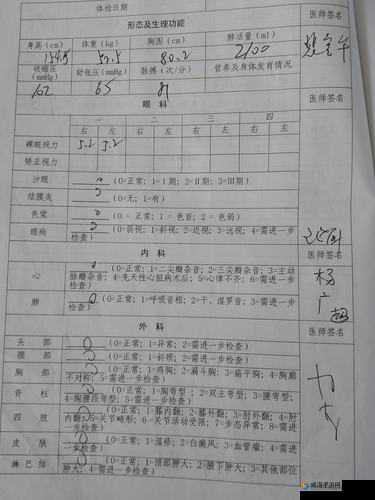 体检日期
形态及生理功能
医师签名
身高（cm） 体重（kg） 胸围（cm） 肺活量（ml）
80.2 2100
收缩压（mmHg） 舒张压（mmHg） 脉搏（次/分） 营养及身体发育情况
102 65 81
眼 科
医师签名
一 二 三 四
右 左 右 左 右 左 右 左
裸眼视力 5.1 5.2
矫正视力
沙眼 0 （0=正常；1=Ⅰ期；2=Ⅱ期；3=Ⅲ期）
结膜炎 （0=无；1=有）
色觉 0 （0=正常；1=色盲；2=色弱）
（0=正视；1=斜视；2=近视；3=远视；4=需进一步检查）
内 科
医师签名
心 （0=正常；1=二尖瓣杂音；2=三尖瓣杂音；3=主动脉瓣杂音；4=先天性心脏病术后；5=心律不齐；6=需进一步检查）
杨广
肺 0 （0=正常；1=呼吸音粗；2=干、湿罗音；3=需进一步检查）
外 科
医师签名
头 部 0 （0=正常；1=异常；2=需进一步检查）
颈 部 0 （0=正常；1=斜颈；2=需进一步检查）
胸 部 （0=正常；1=鸡胸；2=漏斗胸；3=扁平胸；4=胸廓不对称；5=需进一步检查）
脊 柱 （0=正常；1=胸弯型；2=双主弯型；3=腰弯型；4=胸腰段弯型；5=需进一步检查）
四 肢 （0=正常；1=膝内翻；2=膝外翻；3=肘外翻；4=肘内翻；5=关节畸形；6=关节活动受限；7=步态异常；8=需进一步检查）
皮 肤 （0=正常；1=湿疹；2=白癜风；3=血管瘤；4=需进一步检查）
淋巴结 （0=正常；1=颈部肿大；2=腋下肿大；3=其他部位肿大；4=需进一步检查）